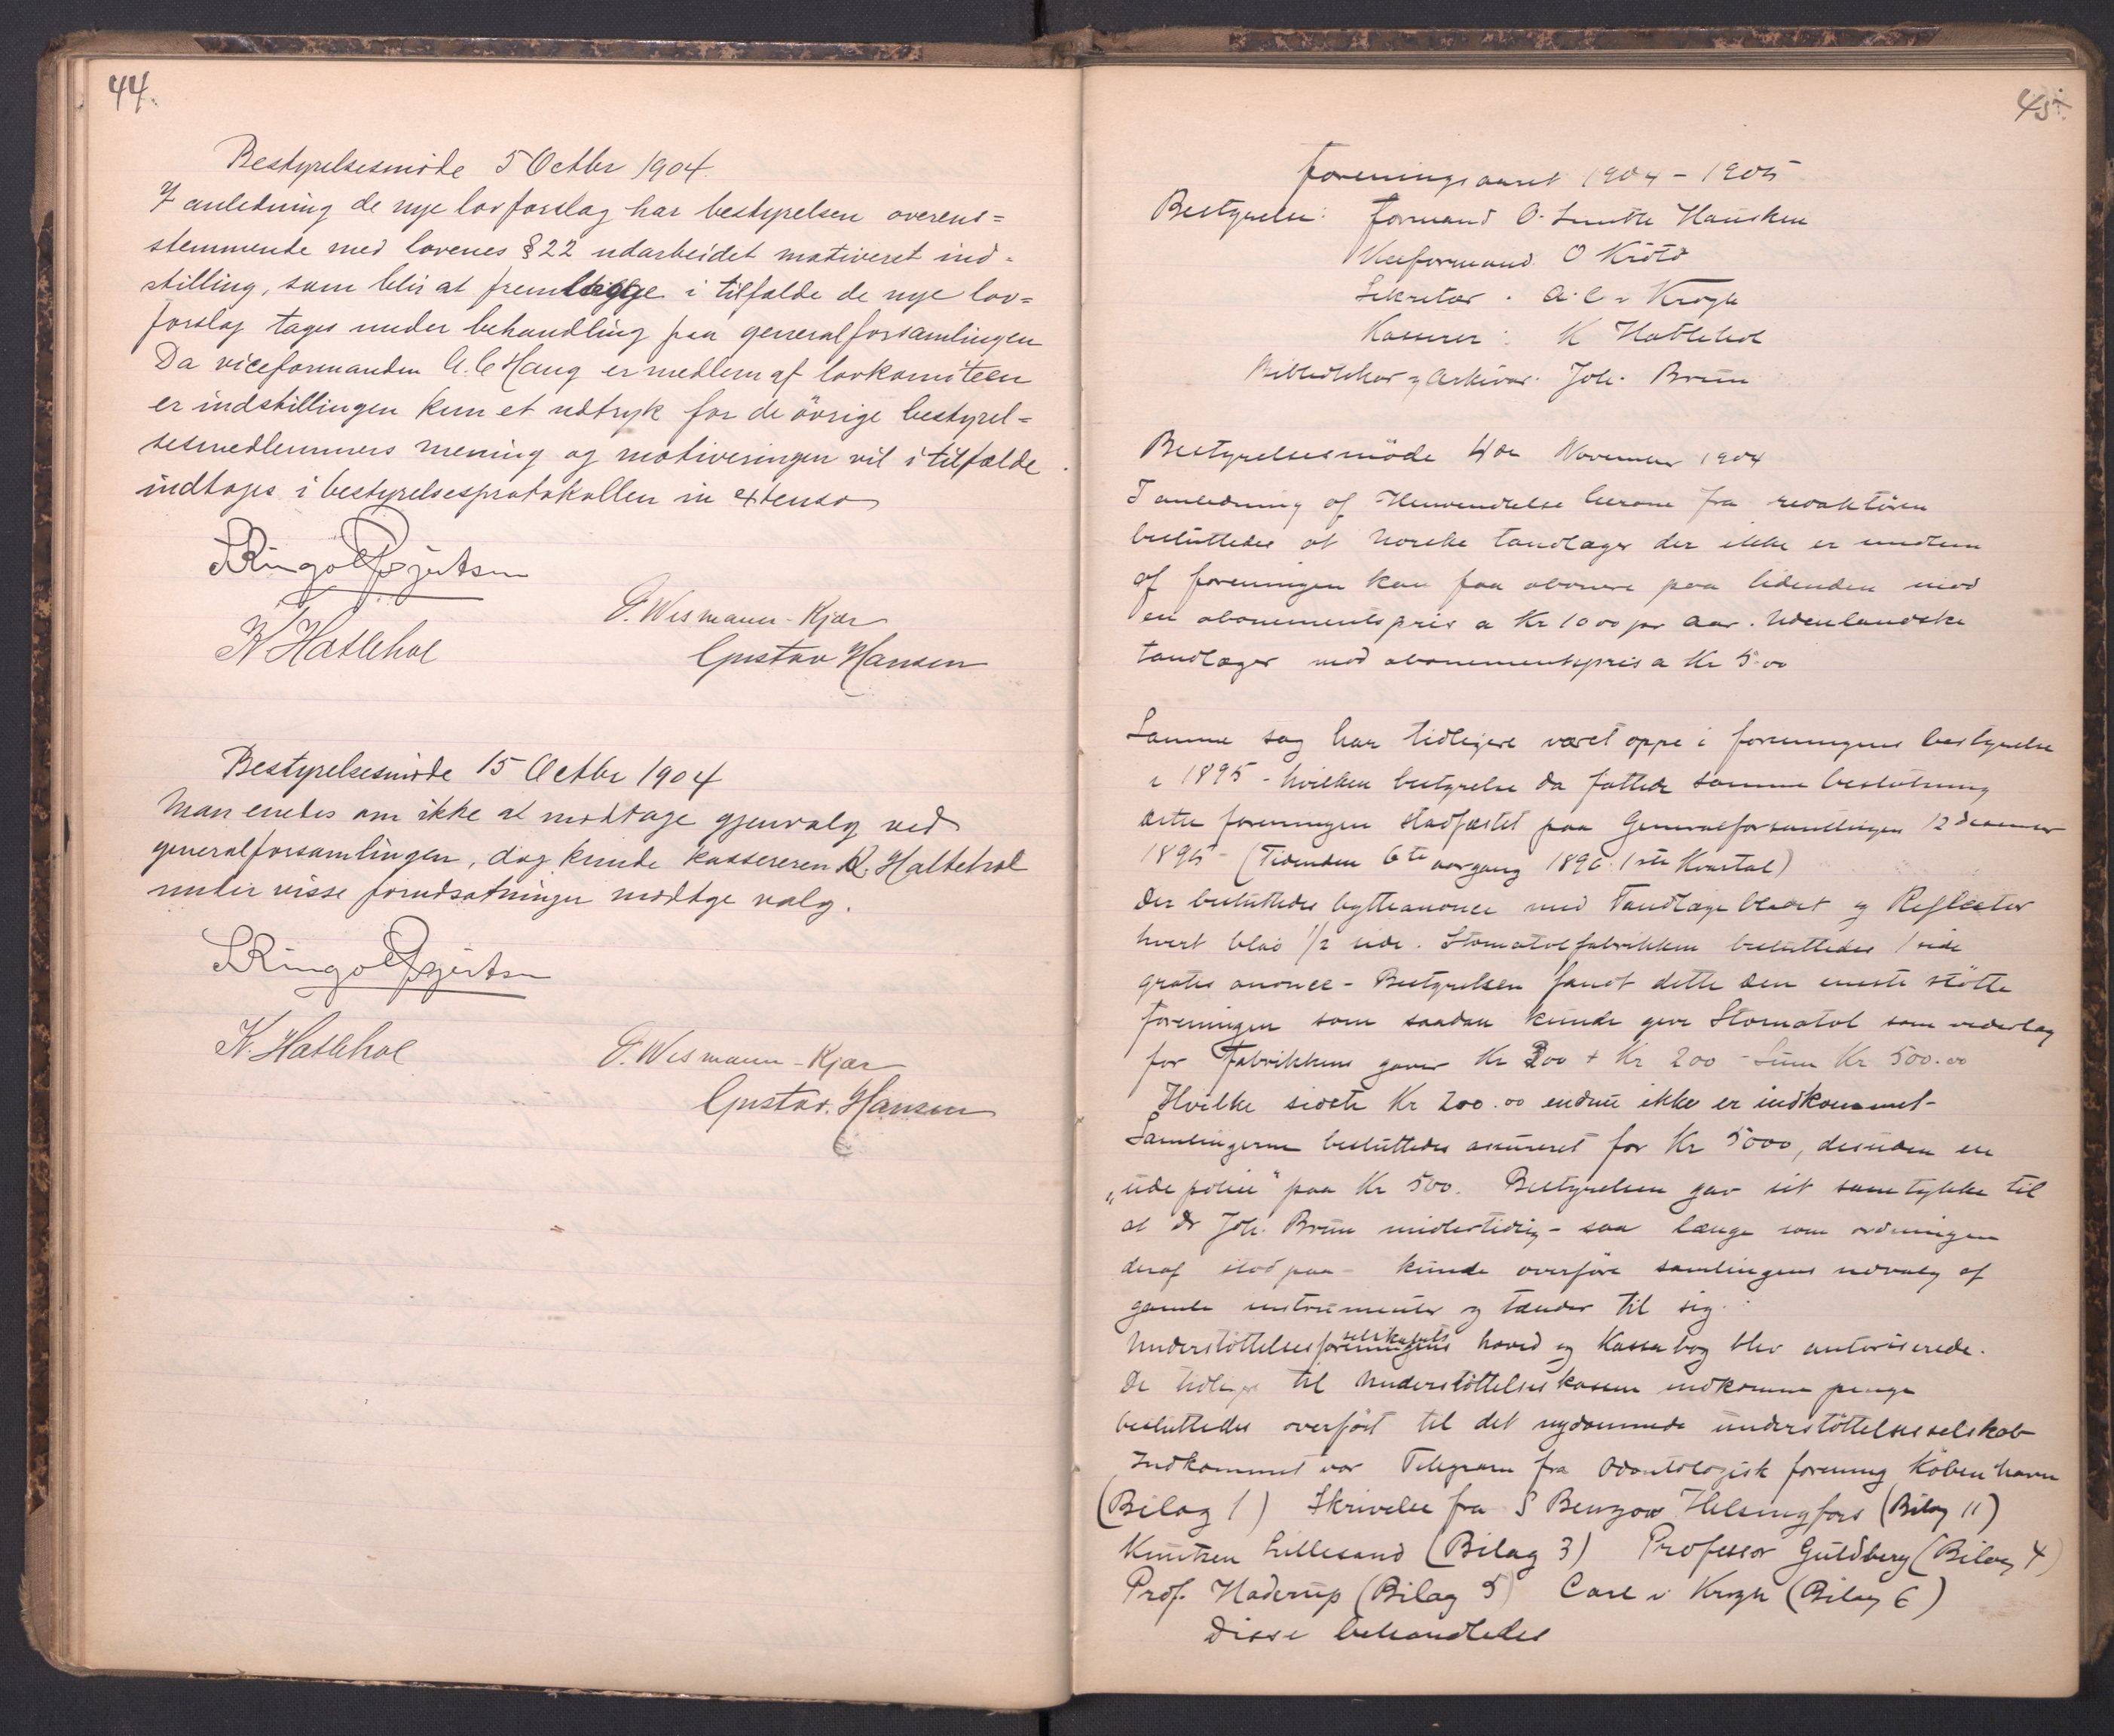 44.
Bestyrelsesmöde 5 Octbr 1904.
I anledning de nye lovforslag har bestyrelsen overens=
stemmende med lovenes § 22 udarbeidet motiveret ind=
stilling, som blir at fremlægge i tilfælde de nye lov=
forslag tages under behandling paa generalforsamlingen
Da viceformanden A. C Haug er medlem af lovkomiteen
er indstillingen kun et udtryk for de övrige bestyrel=
sesmedlemmers mening og motiveringen vil i tilfælde
indtages i bestyrelsesprotokollen in extenso
K Hatlehol
P. Wismann-Kjær
Gustav Hansen
Bestyrelsesmöde 15 Octbr 1904
Man enedes om ikke at modtage gjenvalg ved
generalforsamlingen, dog kunde kassereren K. Hatlehol
under visse forudsætninger modtage valg.
K. Hatlehol
P. Wismann-Kjær
Gustav. Hansen
45.
Foreningsaaret 1904 - 1905
Bestyrelse: Formand O. Smith Housken
Viceformand O
Sekretær. A. C v Krogh
Kasserer: K Hatlehol
Bibliothekar og Arkivar. Joh. Brun
Bestyrelsesmöde 4de November 1904
I anledning af Henvendelse herom fra redaktören
besluttedes at norske tandlæger der ikke er medlem
af foreningen kan faa abonere paa tidenden mod
en abonementspris a Kr 10 00 pr aar. Udenlandske
tandlæger mod abonementspris a Kr 5.00
Samme sag har tidligere været oppe i foreningens bestyrelse
i 1895 - hvilken bestyrelse da fattede samme beslutning
dette foreningen stadfæstet paa Generalforsamlingen 12 december
1895 - (Tidenden 6te aargang 1896. 1ste Kvartal)
Der besluttedes bytteanonce med Tandlægebladet og Reflector
hvert blad 1/2 side. Stomatolfabrikken besluttedes 1 side
gratis anonce - Bestyrelsen fandt dette den eneste stötte
foreningen som saadan kunde give Stomatol som vederlag
for Fabrikkens gaver Kr 300 + Kr 200 - Sum Kr 500.00
Hvilke sidste Kr 200.00 endnu ikke er indkommet-
Samlingerne besluttedes asureret for Kr 5000, desuden en
„ude police" paa Kr 500. Bestyrelsen gav sit samtykke til
at Dr Joh. Brun midlertidig - saa længe som ordningen
deraf stod paa - kunde overföre samlingens udvalg af
gamle instrumenter og tænder til sig.
selskabets
Understöttelsesforeningens hoved og Kassabog blev autoriserede.
De tidligere til Understöttelseskassen indkomne penge
besluttedes overfört til det nydannede understöttelsesselskab
Indkommet var Telegram fra Odontologisk forening Köbenhavn
(Bilag 1) Skrivelse fra S Benzow Helsingfors (Bilag 11)
Knutzen Lillesand (Bilag 3) Professor Guldberg (Bilag 4)
Prof. Haderup (Bilag 5) Carl v Krogh (Bilag 6)
Disse behandledes